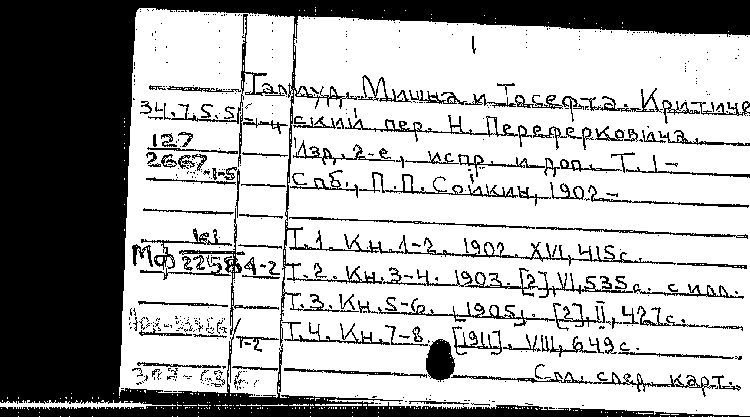 1
Талмуд. Мишна и Тосефта. Критиче
34.7.5.5
1-4
ский пер. Н. Переферковича.
127
Изд. 2-е, испр. и доп. Т.1-
2667
1-5
Спб., П.П. Сойкин, 1902-
Т.1. Кн. 1-2. 1902. XVI, 415с.
Мф
2258
1-2
Т.2. Кн.3-4. 1903. [2], VI, 535с. с илл.
Т.3. Кн.5-6. [1905]. [2], II, 427с.
Т.4. Кн.7-8. [1911]. VIII, 649с.
Т-2
См. след. карт.